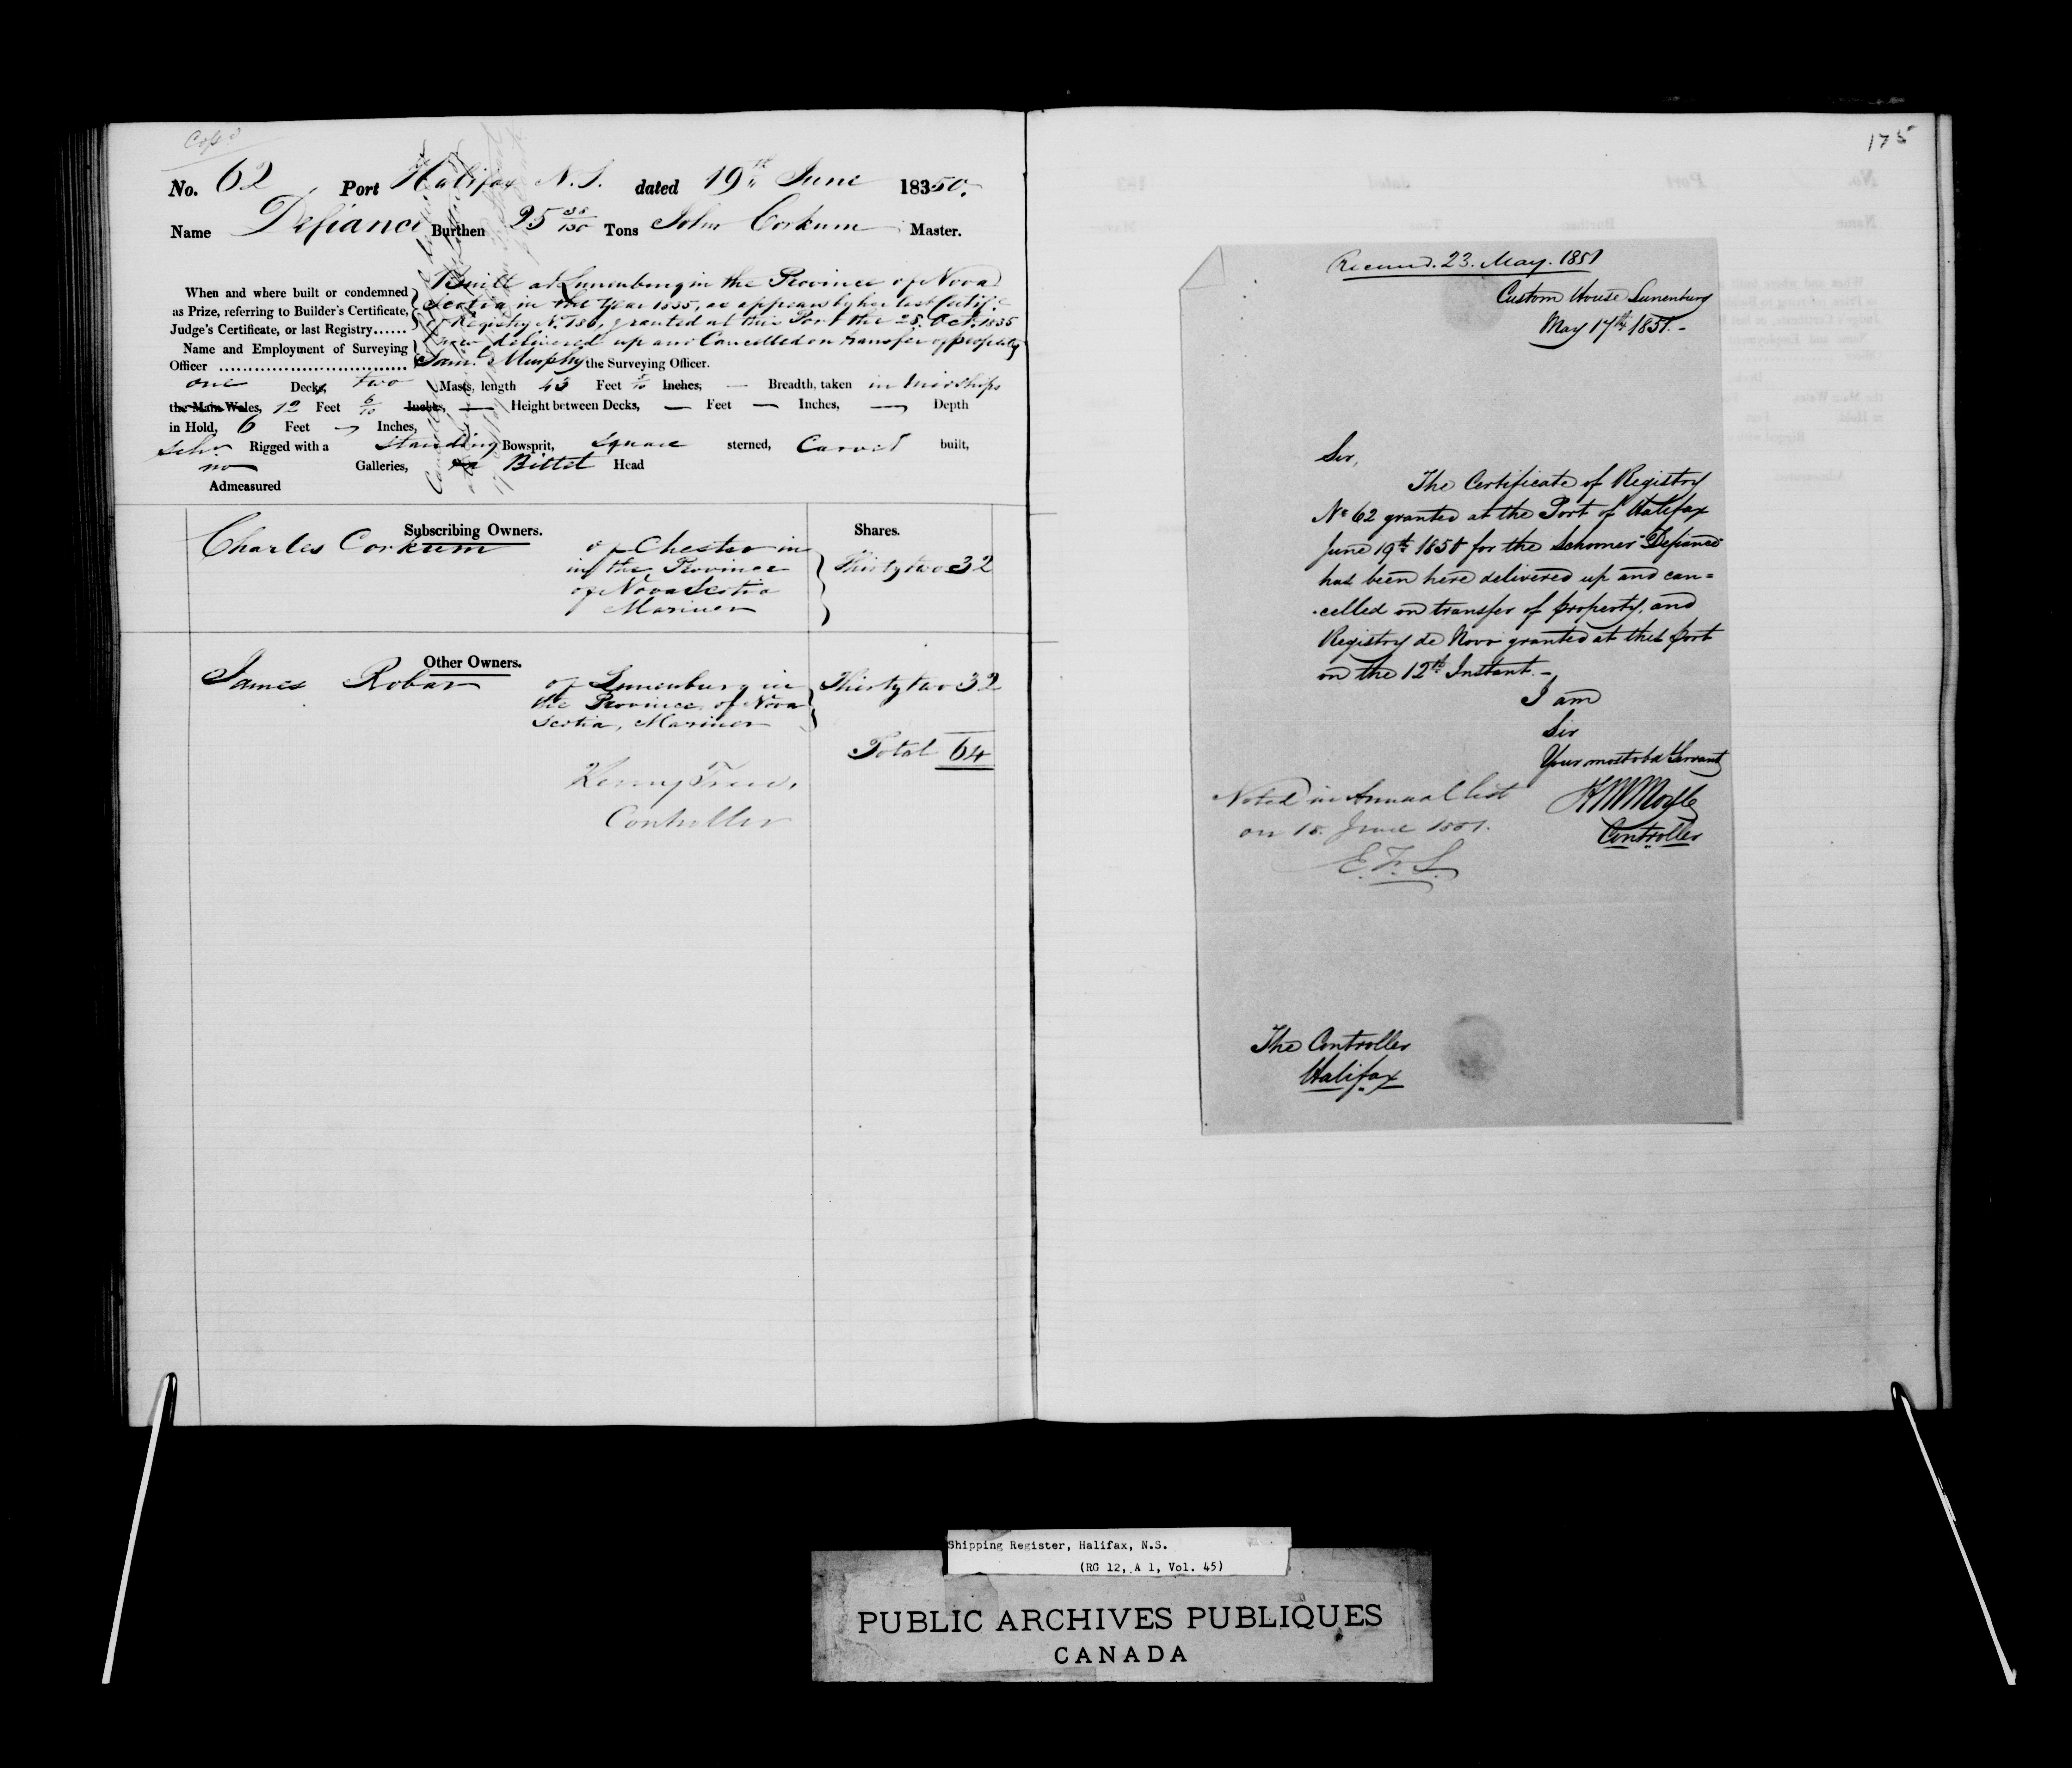 Cop.d
No. 62 Port Halifax N.S. dated 19th June 18350.
Name Defiance Burthen 25 Tons John Corkum Master.
When and where built or condemned
as Prize, referring to Builder's Certificate,
Judge's Certificate, or last Registry......
Built at Lunenburg in the Province of Nova
Scotia in the Year 1835, as appears by her last Certif.
of Registry No. granted at this Port the 28. Oct. 1835
now delivered up and Cancelled on transfer of property
Name and Employment of Surveying
Officer Saml. Murphy the Surveying Officer.
one Decks, two Masts, length 43 Feet Inches, — Breadth, taken in midships
the Main Wales, 12 Feet 6/10 Inches, — Height between Decks, — Feet — Inches, — Depth
in Hold, 6 Feet — Inches,
Schr Rigged with a standing Bowsprit, square sterned, Carvel built,
no Galleries, Billet Head
Admeasured
Subscribing Owners. Shares.
Charles Corkum of Chester in
in the Province
of Nova Scotia
Mariner
Thirty two 32
Other Owners.
James Robar of Lunenburg in
the Province of Nova
Scotia, Mariner
Thirty two 32
Total 64
Controller
175
Received. 23. May. 1851
Custom House Lunenburg
May 17th 1851.-
Sir,
The Certificate of Registry
No 62 granted at the Port of Halifax
June 19th 1850 for the Schooner "Defiance"
has been here delivered up and can=
celled on transfer of property, and
Registry de Novo granted at this port
on the 12th Instant.-
I am
Sir
Your most obd Servant
Controller
Noted in Annual list
on 18. June 1851.
The Controller
Halifax
Shipping Register, Halifax, N.S.
(RG 12, A 1, Vol. 45)
PUBLIC ARCHIVES PUBLIQUES
CANADA